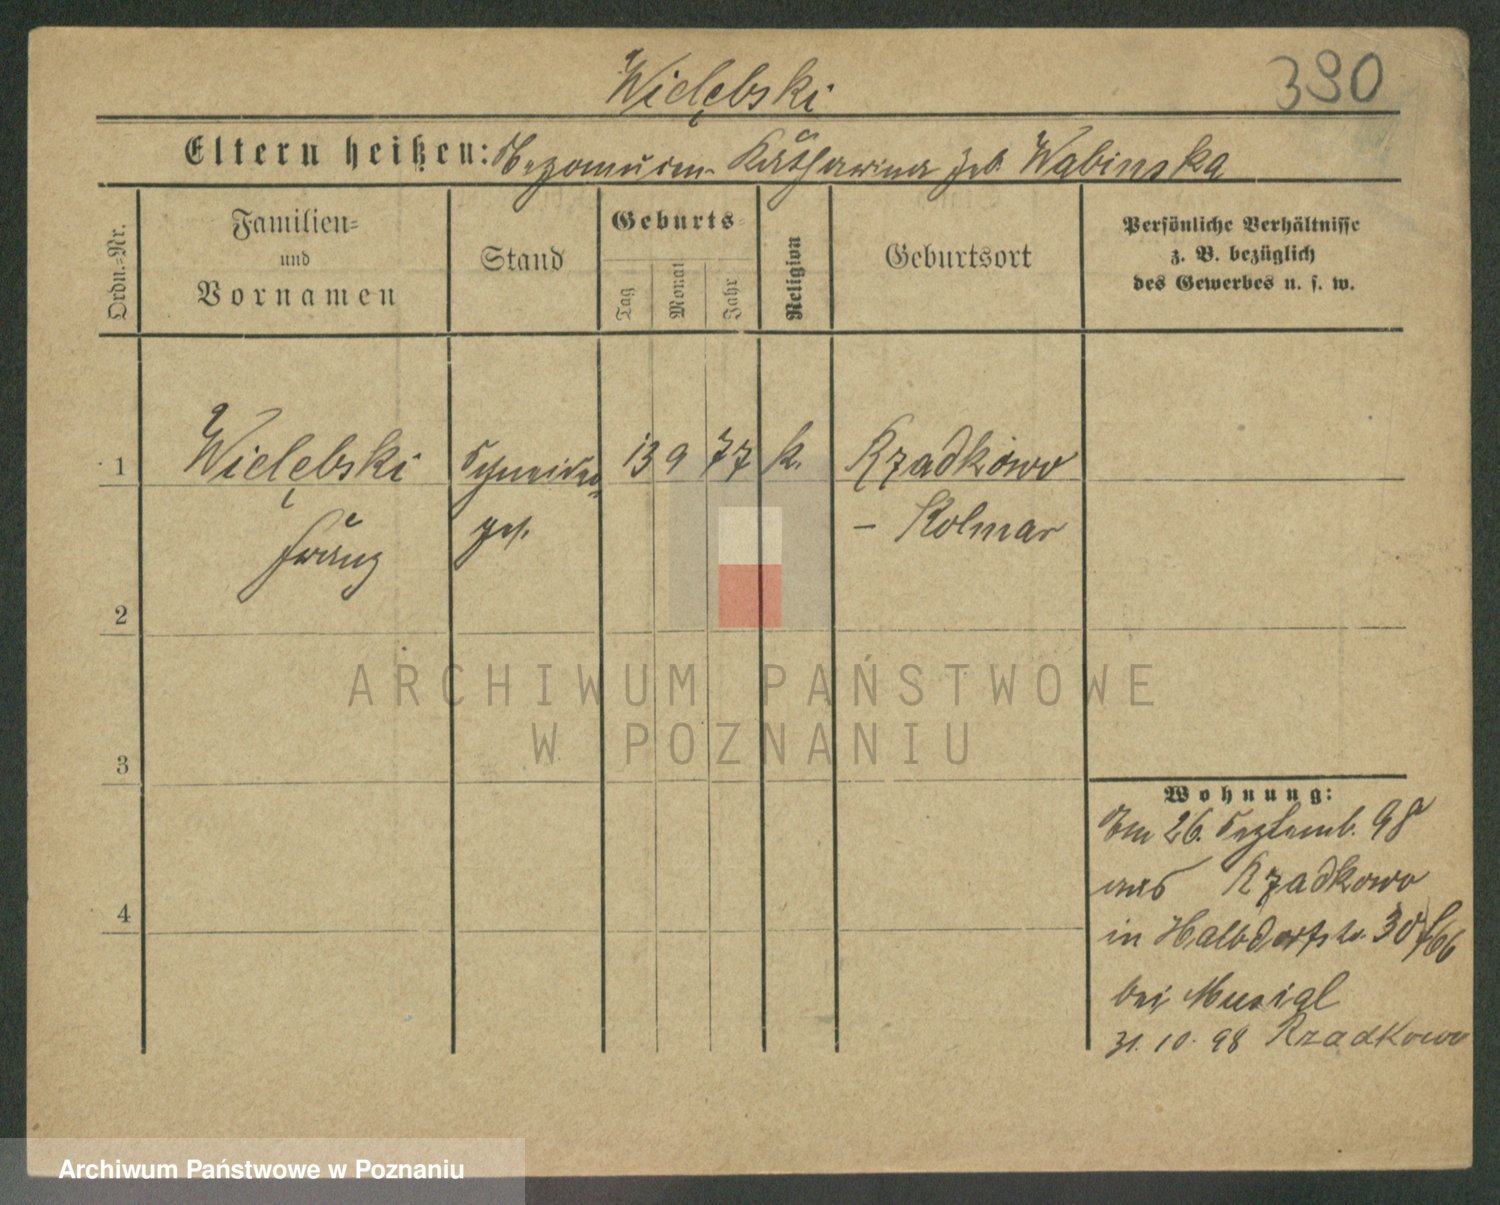 Wielębski
390
Eltern heißen: Nepomucen - Katharina geb. Wabinska
Ordn.=Nr.
Familien=
und
Vornamen
Stand
Geburts=
Tag
Monat
Jahr
Religion
Geburtsort
Persönliche Verhältnisse
z. B. bezüglich
des Gewerbes u. s. w.
1 Wielębski Schneider 13 9 77 k. Rzadkowo
Franz ges. - Kolmar
2
3
4
Wohnung:
Am 26. Septemb. 98
aus Rzadkowo
in Halbdorfstr. 30
bei Musial
31. 10. 98 Rzadkowo
ARCHIWUM PAŃSTWOWE
W POZNANIU
Archiwum Państwowe w Poznaniu